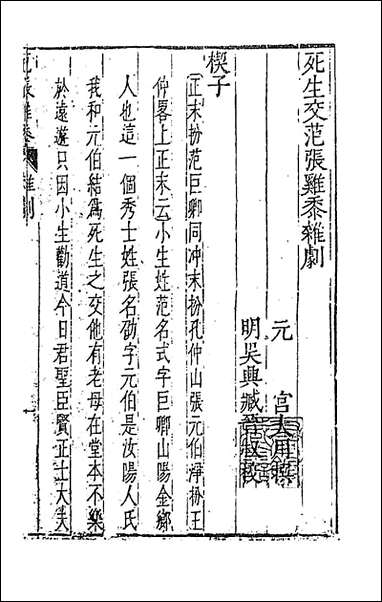 死生交范張雞黍雜劇
元　宮大用撰
明吳興臧晉叔校
楔子
正末扮范巨卿同冲末扮孔仲山張元伯淨扮王
仲畧上正末云小生姓范名式字巨卿山陽金鄉
人也這一個秀士姓張名劭字元伯是汝陽人氏
我和元伯結爲死生之交他有老母在堂本不樂
於遠遊只因小生勸道今日君聖臣賢正士大夫